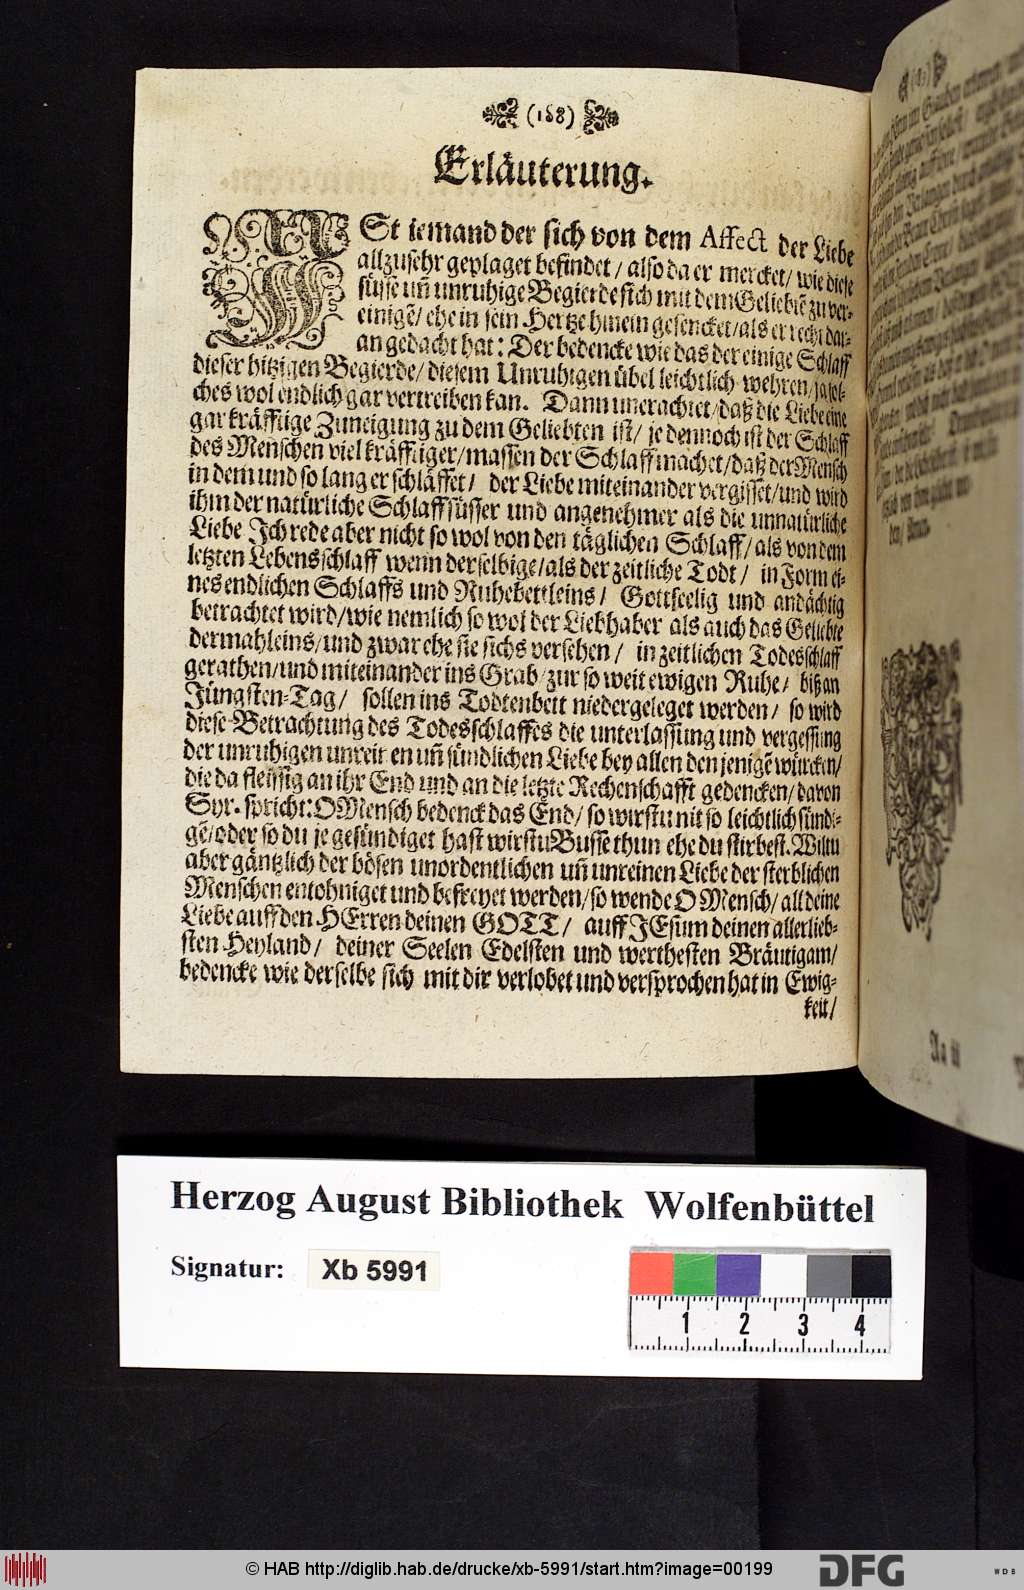 (168)
Erläuterung.
ISt iemand der sich von dem Affect der Liebe
allzusehr geplaget befindet / also da er mercket / wie diese
süsse uñ unruhige Begierde sich mit dem Geliebtẽ zu ver-
einigẽ / ehe in sein Hertze hinein gesencket / als er recht dar-
an gedacht hat: Der bedencke wie das der einige Schlaff
dieser hitzigen Begierde / diesem Unruhigen übel leichtlich wehren / ja sol-
ches wol endlich gar vertreiben kan. Dann unerachtet / daß die Liebe eine
gar kräfftige Zuneigung zu dem Geliebten ist / je dennoch ist der Schlaff
des Menschen viel kräfftiger / massen der Schlaff machet / daß der Mensch
in dem und so lang er schläffet / der Liebe miteinander vergisset / und wird
ihm der natürliche Schlaff süsser und angenehmer als die unnatürliche
Liebe Ich rede aber nicht so wol von den täglichen Schlaff / als von dem
letzten Lebensschlaff wenn derselbige / als der zeitliche Todt / in Form ei-
nes endlichen Schlaffs und Ruhebettleins / Gottseelig und andächtig
betrachtet wird / wie nemlich so wol der Liebhaber als auch das Geliebte
dermahleins / und zwar ehe sie sichs versehen / in zeitlichen Todesschlaff
gerathen / und miteinander ins Grab / zur so weit ewigen Ruhe / biß an
Jüngsten-Tag / sollen ins Todtenbett niedergeleget werden / so wird
diese Betrachtung des Todesschlaffes die unterlassung und vergessung
der unruhigen unreinen uñ sündlichen Liebe bey allen den jenigẽ würcken /
die da fleissig an ihr End und an die letzte Rechenschafft gedencken / davon
Syr. spricht: O Mensch bedenck das End / so wirstu nit so leichtlich sündi-
gẽ / oder so du je gesündiget hast wirstu Busse thun ehe du stirbest. Wiltu
aber gäntzlich der bösen unordentlichen uñ unreinen Liebe der sterblichen
Menschen entohniget und befreyet werden / so wende O Mensch / all deine
Liebe auff den HErren deinen GOTT / auff JEsum deinen allerlieb-
sten Heyland / deiner Seelen Edelsten und werthesten Bräutigam /
bedencke wie derselbe sich mit dir verlobet und versprochen hat in Ewig-
keit /
Aa iii
Herzog August Bibliothek Wolfenbüttel
Signatur: Xb 5991
1 2 3 4
© HAB http://diglib.hab.de/drucke/xb-5991/start.htm?image=00199
DFG
WDB